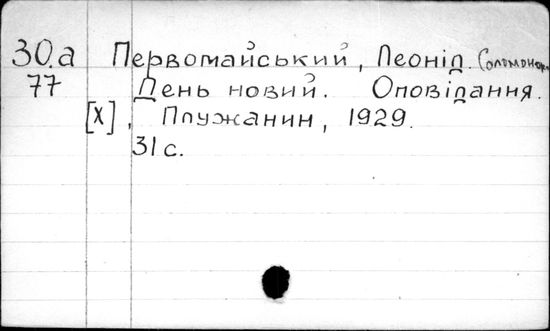 30.а Первомайський, Леонід Соломонов.
77 День новий. Оповідання.
[Х], Плужанин, 1929.
31 с.